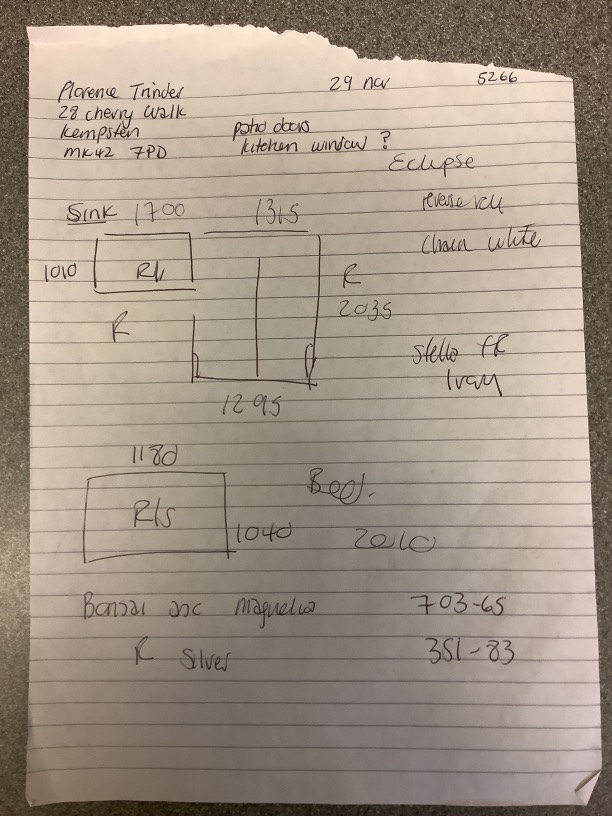 Florence Trinder 29 nov 5266
28 cherry Walk
Kempston patio doors
MK42 7PD kitchen window ?
Eclipse
Sink 1700 1315 reverse roll
chain white
1010 R R
2035
R
Stella FR
Ivory
1295
1180
R/s Bed.
1040 2010
Bonsai asc magnolia 703-65
R Silver 351-83